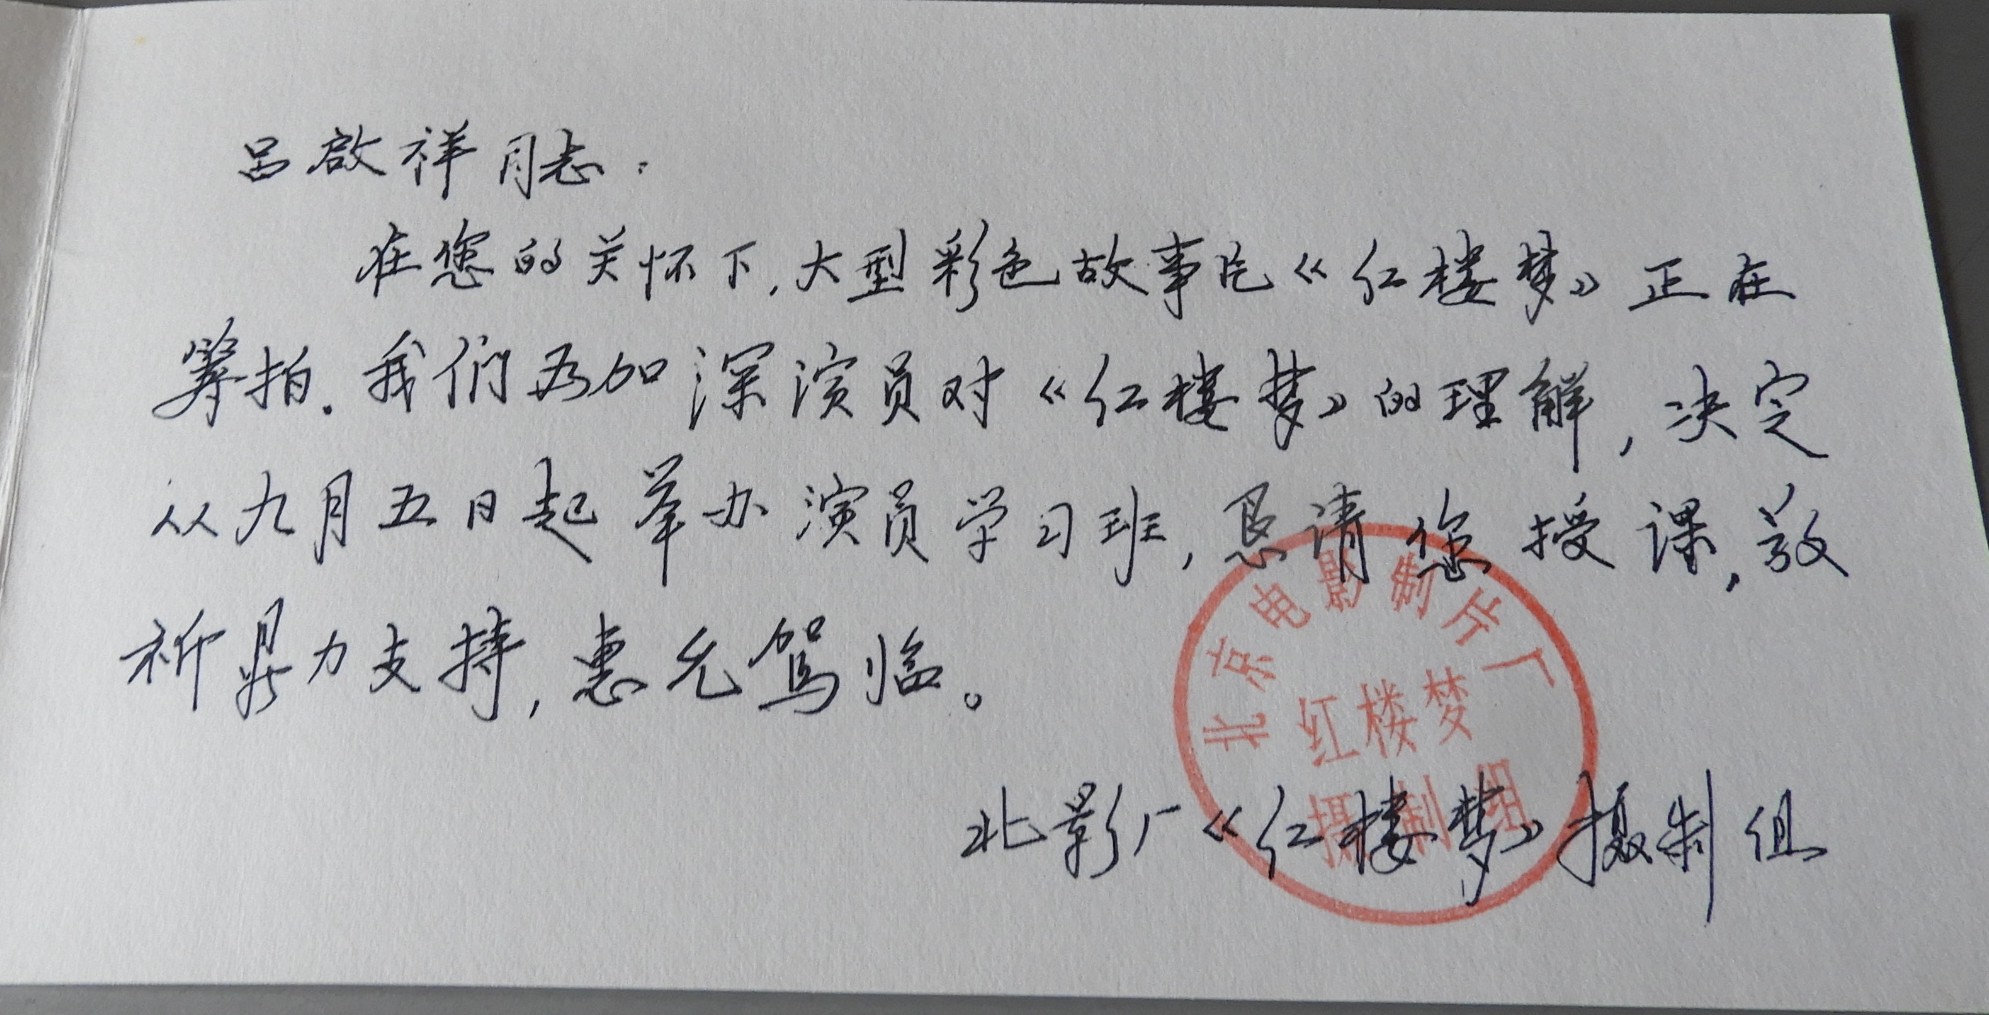 吕啟祥同志：
在您的关怀下，大型彩色故事片《红楼梦》正在
筹拍。我们为加深演员对《红楼梦》的理解，决定
从九月五日起举办演员学习班，恳请您授课，敬
祈鼎力支持，惠允驾临。
北影厂《红楼梦》摄制组
北京电影制片厂
红楼梦
摄制组